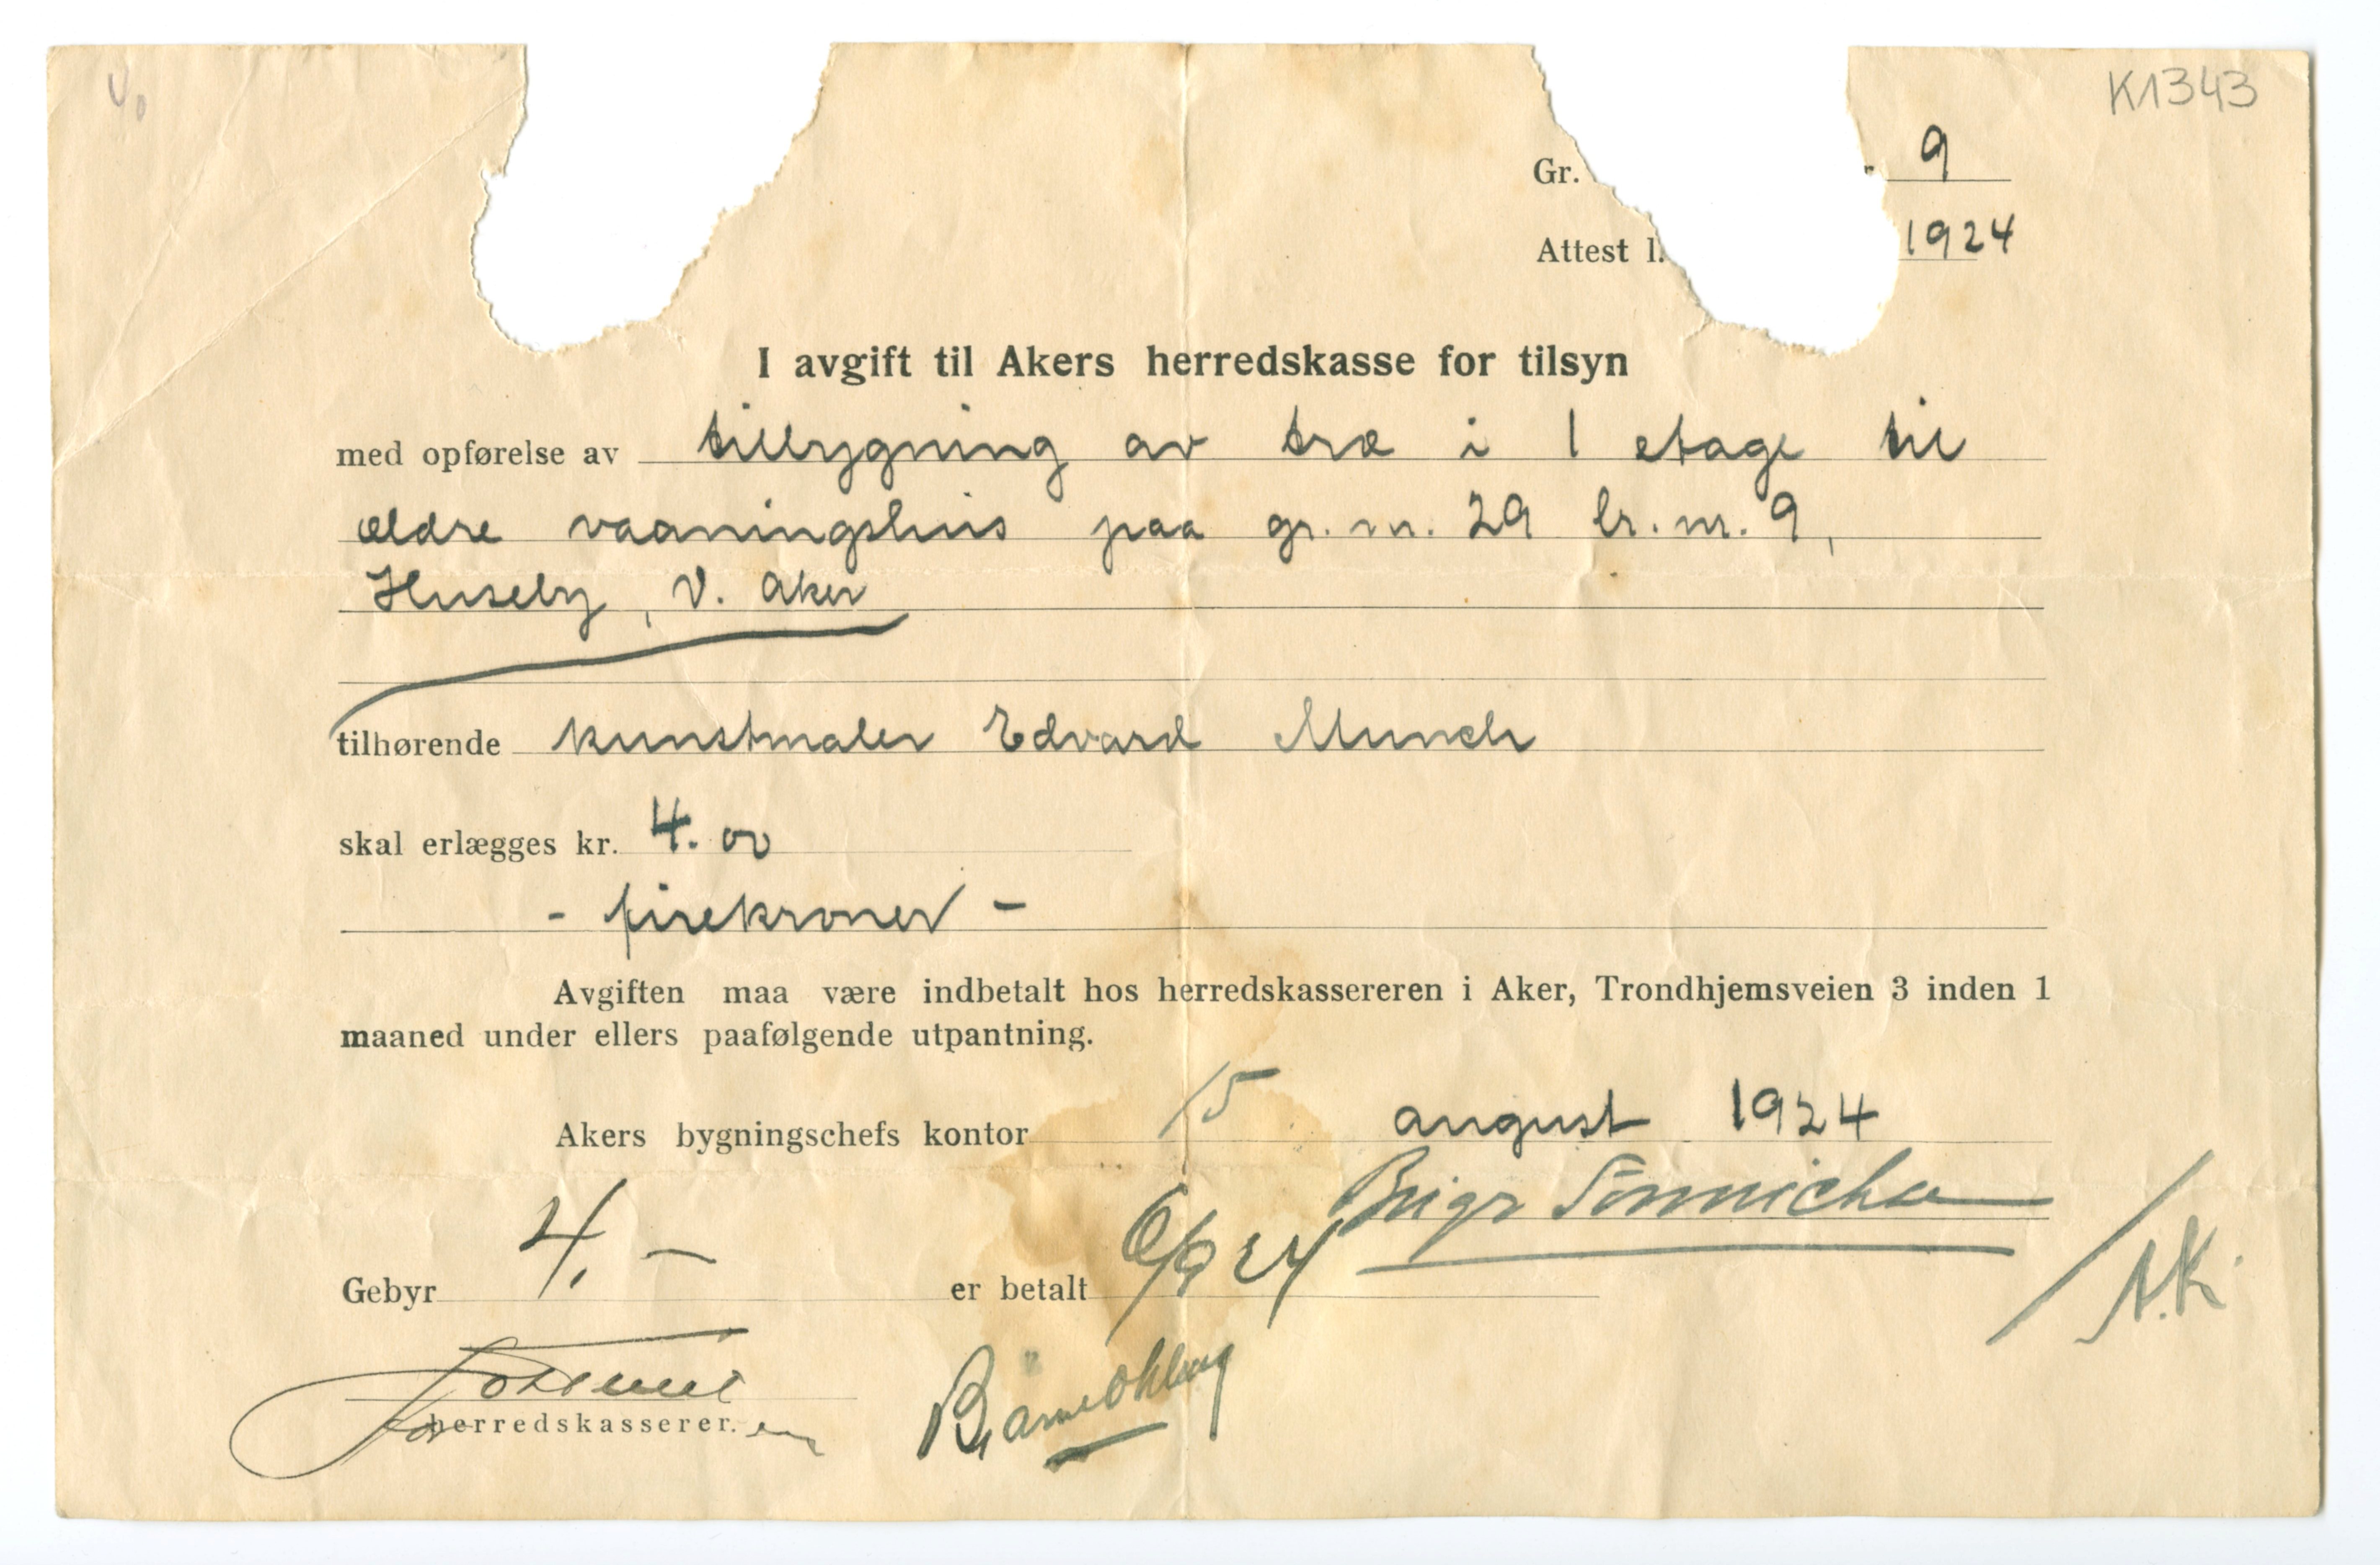 K1343
Gr. 9
Attest l. 1924
I avgift til Akers herredskasse for tilsyn
med opførelse av tilbygning av træ i 1 etage til
ældre vaaningshus paa gr. nr. 29 br. nr. 9,
Huseby, V. Aker
tilhørende kunstmaler Edvard Munch
skal erlægges kr. 4.00
- firekroner -
Avgiften maa være indbetalt hos herredskassereren i Aker, Trondhjemsveien 3 inden 1
maaned under ellers paafølgende utpantning.
Akers bygningschefs kontor 15 august 1924
Gebyr 4,- er betalt 6/9 24
herredskasserer.